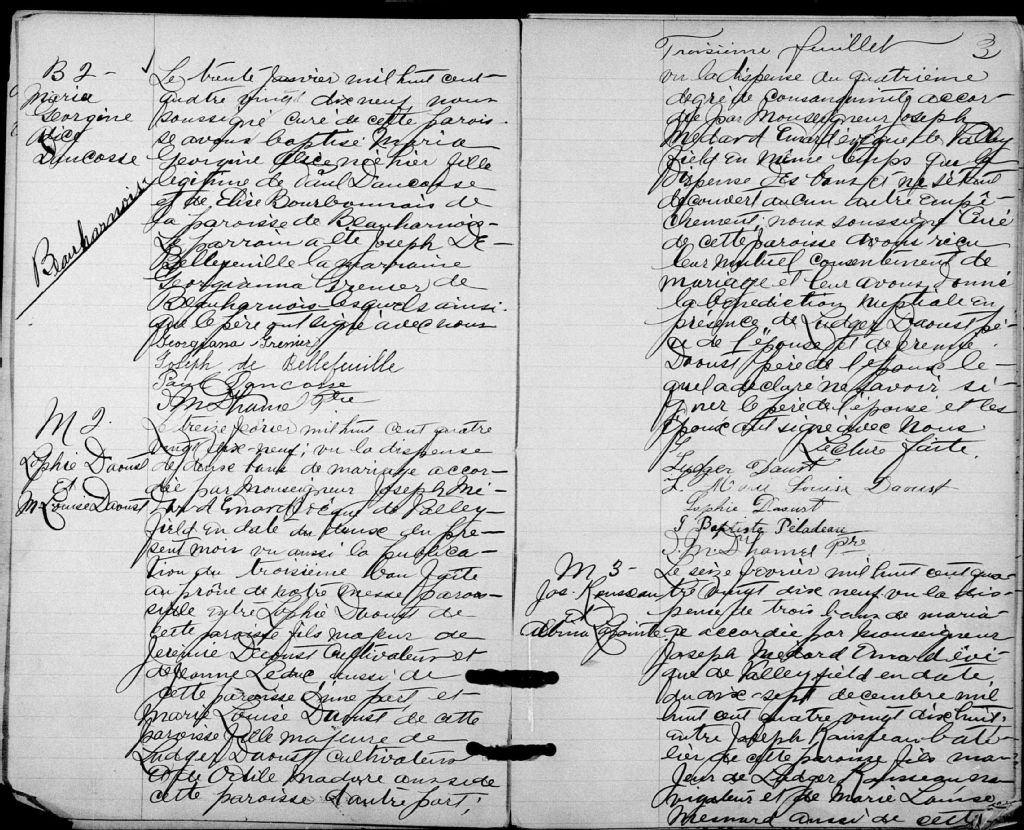 B 2 -
Maria
Georgine
Alice
Dancosse
Beauharnois
Le trente Janvier mil huit cent
quatre vingt dix neuf, nous
soussigné curé de cette parois-
se avons baptisé Maria
Georgine Alice née hier fille
légitime de Paul Dancosse
et de Elise Bourbonnais de
la paroisse de Beauharnois-
Le parrain a été Joseph De
Bellefeuille la marraine
Georgianna Grenier de
Beauharnois lesquels ainsi
que le père ont signé avec nous
Georgiana Grenier
Joseph de Bellefeuille
Paul Dancosse
Ptre
M 2.
Sophie Daoust
et
M Louise Daoust
Le treize février mil huit cent quatre
vingt dix-neuf; vu la dispense
de deux bans de mariage accor-
dée par Monseigneur Joseph Mé-
dard Emard évêque de Valley-
field en date du onze du pré-
sent mois vu aussi la publica-
tion du troisième ban faite
au prône de notre messe parois-
siale entre Sophie Daoust de
cette paroisse fils majeur de
Jérémie Daoust cultivateur et
de Jeanne Leduc aussi de
cette paroisse d'une part et
Marie Louise Daoust de cette
paroisse fille majeure de
Ludger Daoust cultivateur
et de Odile Madore aussi de
cette paroisse d'autre part;
Troisième feuillet 3
vu la dispense du quatrième
degré de consanguinité accor-
dée par Monseigneur Joseph
Médard Emard évêque de Valley
field en même temps que la
dispense des bans et ne s'étant
découvert aucun autre empê-
chement; nous soussigné Curé
de cette paroisse avons reçu
leur mutuel consentement de
mariage et leur avons donné
la bénédiction nuptiale en
présence de Ludger Daoust pè-
re de l'épouse et de Jérémie
Daoust père de l'époux le-
quel a déclaré ne savoir si-
gner le père de l'épouse et les
époux ont signé avec nous.
Lecture faite.
Ludger Daoust
Marie Louise Daoust
Sophie Daoust
J Baptiste Péladeau
Ptre
M 3-
Jos. Rousseau
et
Albina Lapointe
Le seize février mil huit cent qua-
tre vingt dix neuf vu la dis-
pense de trois bans de maria-
ge accordée par Monseigneur
Joseph Médard Emard évê-
que de Valleyfield en date
du dix-sept decembre mil
huit cent quatre vingt dix huit,
entre Joseph Rousseau bate-
lier de cette paroisse fils ma-
jeur de Ludger Rousseau na-
vigateur et de Marie Louise
Mesnard aussi de cette